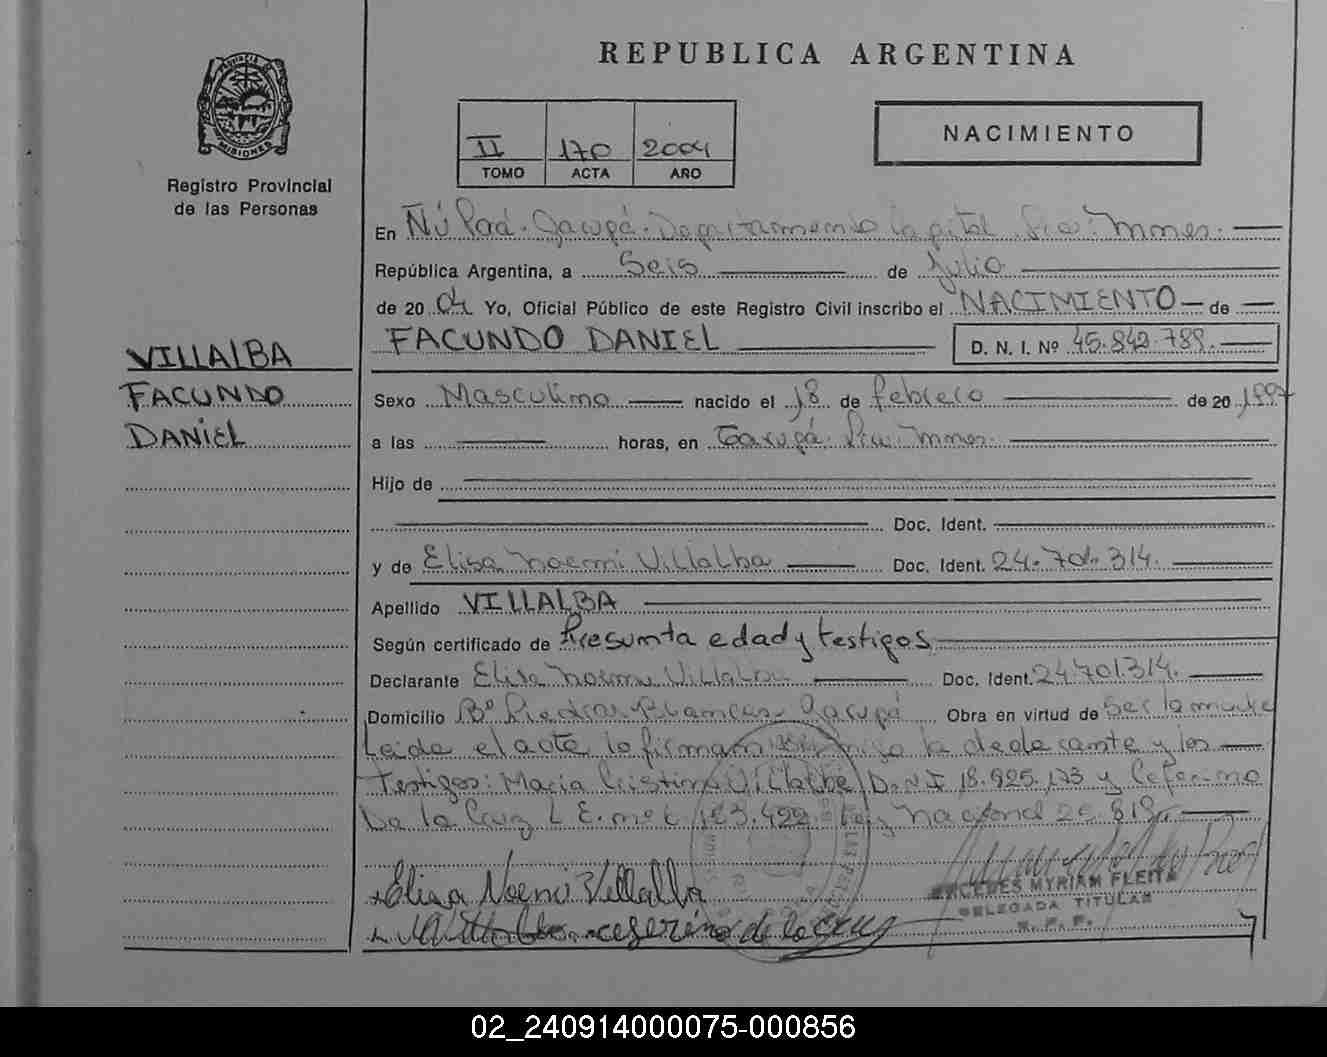 REPUBLICA ARGENTINA
PROVINCIA DE MISIONES
Registro Provincial
de las Personas
II 170 2004
TOMO ACTA AÑO
NACIMIENTO
En Ñú Porá. Garupá. Departamento Capital. Pcia: Mnes.
República Argentina, a Seis de Julio
de 2004 Yo, Oficial Público de este Registro Civil inscribo el NACIMIENTO de
FACUNDO DANIEL D. N. I. Nº 45.842.789.
VILLALBA
FACUNDO
DANIEL
Sexo Masculino nacido el 18 de febrero de 20 1997
a las horas, en Garupá. Pcia: Mnes.
Hijo de
Doc. Ident.
y de Elisa Noemi Villalba Doc. Ident. 24.701.314.
Apellido VILLALBA
Según certificado de Presunta edad y testigos
Declarante Elisa Noemi Villalba Doc. Ident. 24.701.314.
Domicilio Bº Piedras Blancas. Garupá Obra en virtud de Ser la madre
Leida el acta, la firman la declarante y los
Testigos: Maria Cristina Villalba D.N.I 18.925.173 y Ceferino
De la Cruz L.E. Nacional
Elisa Noemi Villalba
ceferino de la cruz
MERCEDES MYRIAM FLEITA
DELEGADA TITULAR
R. P. P.
02_240914000075-000856